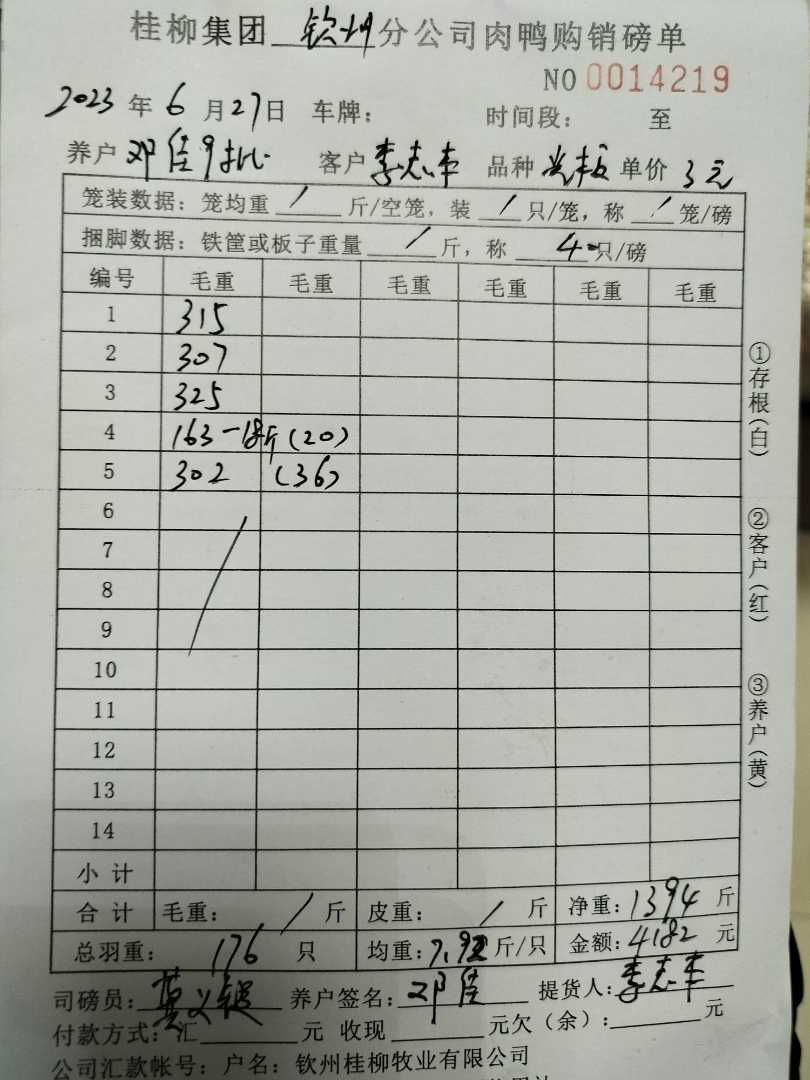 桂柳集团 钦州 分公司肉鸭购销磅单
NO 0014219
2023 年 6 月 27 日 车牌： 时间段： 至
养户 邓佳9批 客户 李志丰 品种 单价 3元
笼装数据：笼均重 / 斤/空笼，装 / 只/笼，称 / 笼/磅
捆脚数据：铁筐或板子重量 / 斤，称 40只/磅
编号 毛重 毛重 毛重 毛重 毛重 毛重
1 315
2 307
3 325
4 163-18斤(20)
5 302 (36)
6
7
8
9
10
11
12
13
14
小计
合计 毛重： / 斤 皮重： / 斤 净重：1394 斤
总羽重： 176 只 均重：7.92 斤/只 金额：4182 元
司磅员： 养户签名：邓佳 提货人：李志丰
付款方式：汇 元 收现 元欠（余）： 元
公司汇款帐号：户名：钦州桂柳牧业有限公司
①存根(白)
②客户(红)
③养户(黄)